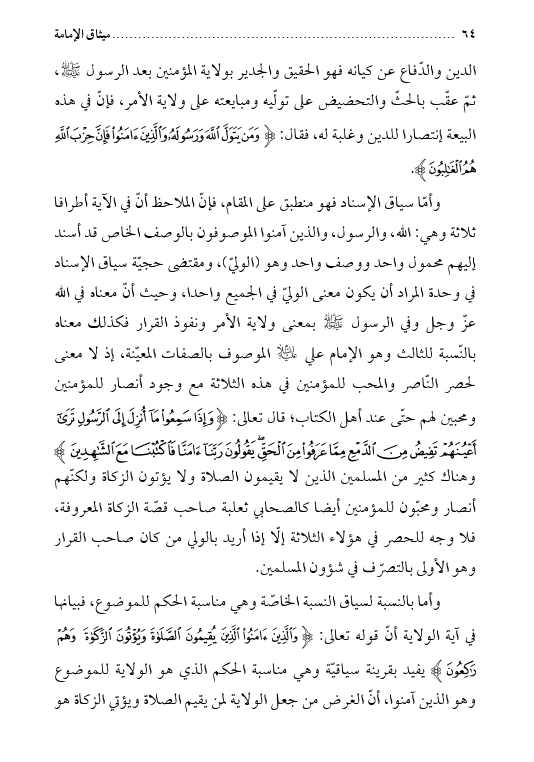 ٦٤ ........................................................................... ميثاق الإمامة
الدين والدّفاع عن كيانه فهو الحقيق والجدير بولاية المؤمنين بعد الرسول ﷺ،
ثمّ عقّب بالحثّ والتحضيض على تولّيه ومبايعته على ولاية الأمر، فإنّ في هذه
البيعة إنتصارا للدين وغلبة له، فقال: ﴿ وَمَن يَتَوَلَّ ٱللَّهَ وَرَسُولَهُۥ وَٱلَّذِينَ ءَامَنُواْ فَإِنَّ حِزْبَ ٱللَّهِ
هُمُ ٱلْغَٰلِبُونَ ﴾.
وأمّا سياق الإسناد فهو منطبق على المقام، فإنّ الملاحظ أنّ في الآية أطرافا
ثلاثة وهي: الله، والرسول، والذين آمنوا الموصوفون بالوصف الخاص قد أسند
إليهم محمول واحد ووصف واحد وهو (الوليّ)، ومقتضى حجيّة سياق الإسناد
في وحدة المراد أن يكون معنى الوليّ في الجميع واحدا، وحيث أنّ معناه في الله
عزّ وجل وفي الرسول ﷺ بمعنى ولاية الأمر ونفوذ القرار فكذلك معناه
بالنّسبة للثالث وهو الإمام علي عليه السلام الموصوف بالصفات المعيّنة، إذ لا معنى
لحصر النّاصر والمحب للمؤمنين في هذه الثلاثة مع وجود أنصار للمؤمنين
ومحبين لهم حتّى عند أهل الكتاب؛ قال تعالى: ﴿ وَإِذَا سَمِعُواْ مَآ أُنزِلَ إِلَى ٱلرَّسُولِ تَرَىٰٓ
أَعْيُنَهُمْ تَفِيضُ مِنَ ٱلدَّمْعِ مِمَّا عَرَفُواْ مِنَ ٱلْحَقِّ ۖ يَقُولُونَ رَبَّنَآ ءَامَنَّا فَٱكْتُبْنَا مَعَ ٱلشَّٰهِدِينَ ﴾
وهناك كثير من المسلمين الذين لا يقيمون الصلاة ولا يؤتون الزكاة ولكنّهم
أنصار ومحبّون للمؤمنين أيضا كالصحابي ثعلبة صاحب قصّة الزكاة المعروفة،
فلا وجه للحصر في هؤلاء الثلاثة إلّا إذا أريد بالولي من كان صاحب القرار
وهو الأولى بالتصرّف في شؤون المسلمين.
وأما بالنسبة لسياق النسبة الخاصّة وهي مناسبة الحكم للموضوع، فبيانها
في آية الولاية أنّ قوله تعالى: ﴿ وَٱلَّذِينَ ءَامَنُواْ ٱلَّذِينَ يُقِيمُونَ ٱلصَّلَوٰةَ وَيُؤْتُونَ ٱلزَّكَوٰةَ وَهُمْ
رَٰكِعُونَ ﴾ يفيد بقرينة سياقيّة وهي مناسبة الحكم الذي هو الولاية للموضوع
وهو الذين آمنوا، أنّ الغرض من جعل الولاية لمن يقيم الصلاة ويؤتي الزكاة هو